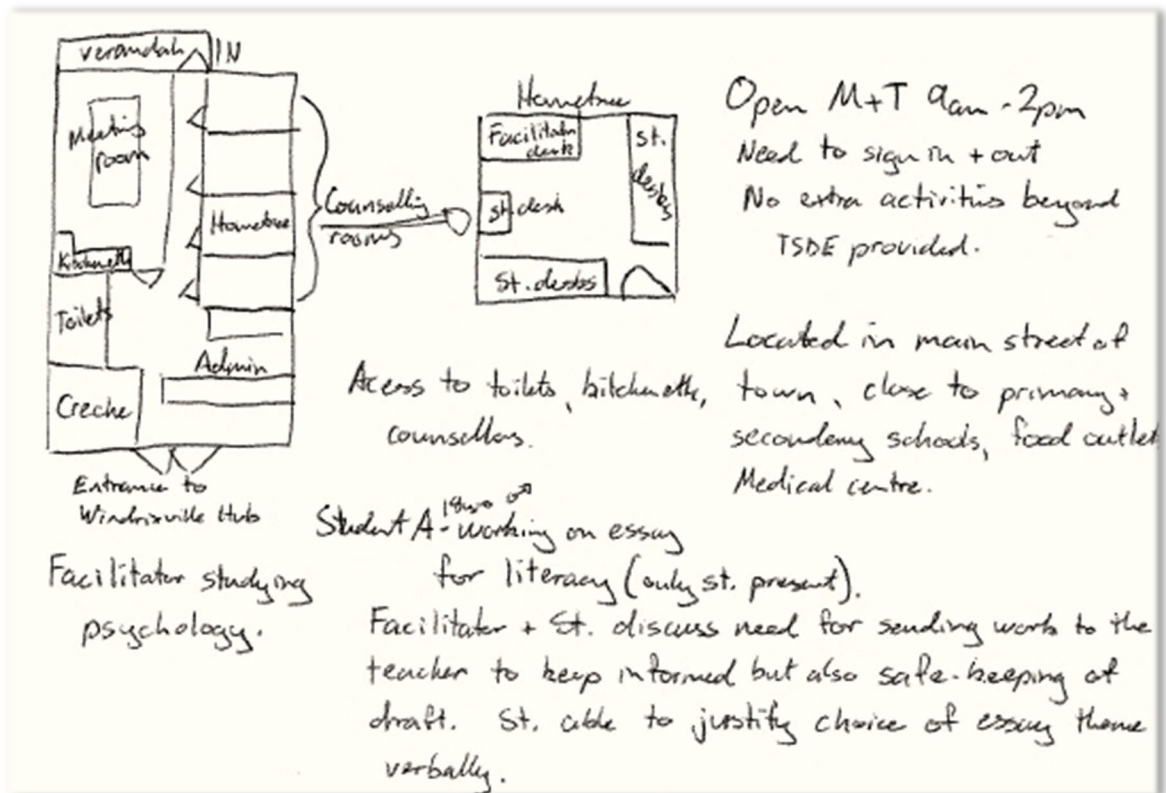 verandah IN
Meeting
room
Kitchenette
Toilets
Creche
Hometree
Admin
Counselling
rooms
Entrance to
Windrixville Hub
Hometree
Facilitator
desk
st.
desks
st. desk
St. desks
Open M+T 9am - 2pm
Need to sign in + out
No extra activities beyond
TSDE provided.
Located in main street of
town, close to primary +
secondary schools, food outlet
Medical centre.
Acess to toilets, kitchenette,
counsellors.
Facilitator studying
psychology.
Student A - working on essay
for literacy (only st. present).
Facilitator + St. discuss need for sending work to the
teacher to keep informed but also safe-keeping of
draft. St. able to justify choice of essay theme
verbally.